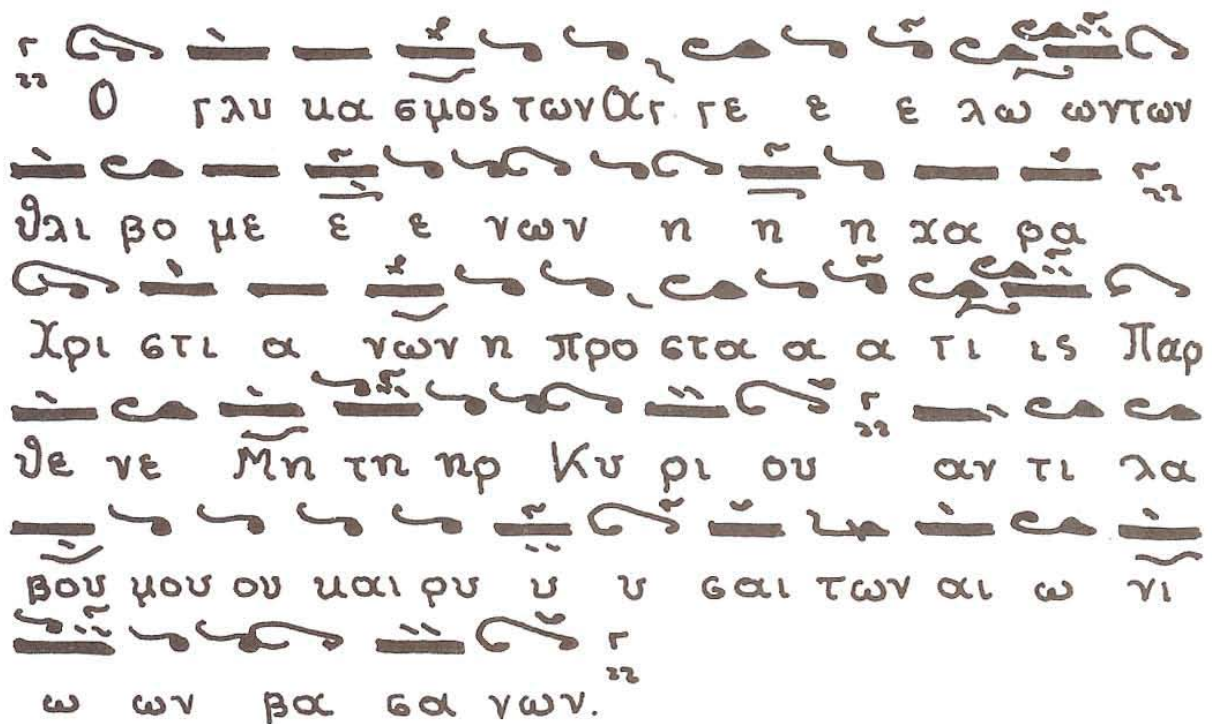 Ο γλυ κα σμος των Αγ γε ε ε λω ων των
θλι βο με ε ε νων η η η χα ρα
Χρι στι α νων η προ στα α α τι ις Παρ
θε νε Μη τη ηρ Κυ ρι ου αν τι λα
βου μου ου και ρυ υ υ σαι των αι ω νι
ω ων βα σα νων.